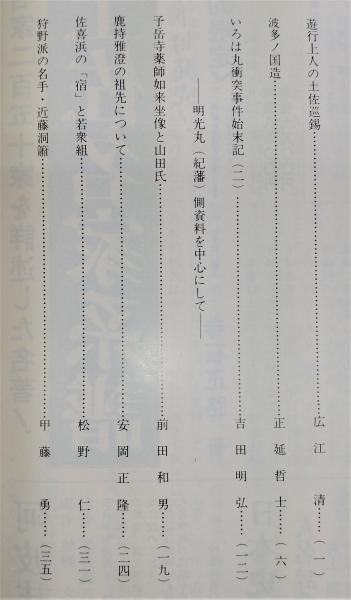 遊行上人の土佐巡錫……広江清……（一）
波多ノ国造……正延哲士……（六）
いろは丸衝突事件始末記（二）……吉田明弘……（一二）
――明光丸（紀藩）側資料を中心にして――
予岳寺薬師如来坐像と山田氏……前田和男……（一九）
鹿持雅澄の祖先について……安岡正隆……（二四）
佐喜浜の「宿」と若衆組……松野仁……（三一）
狩野派の名手・近藤洞簫……甲藤勇……（三五）